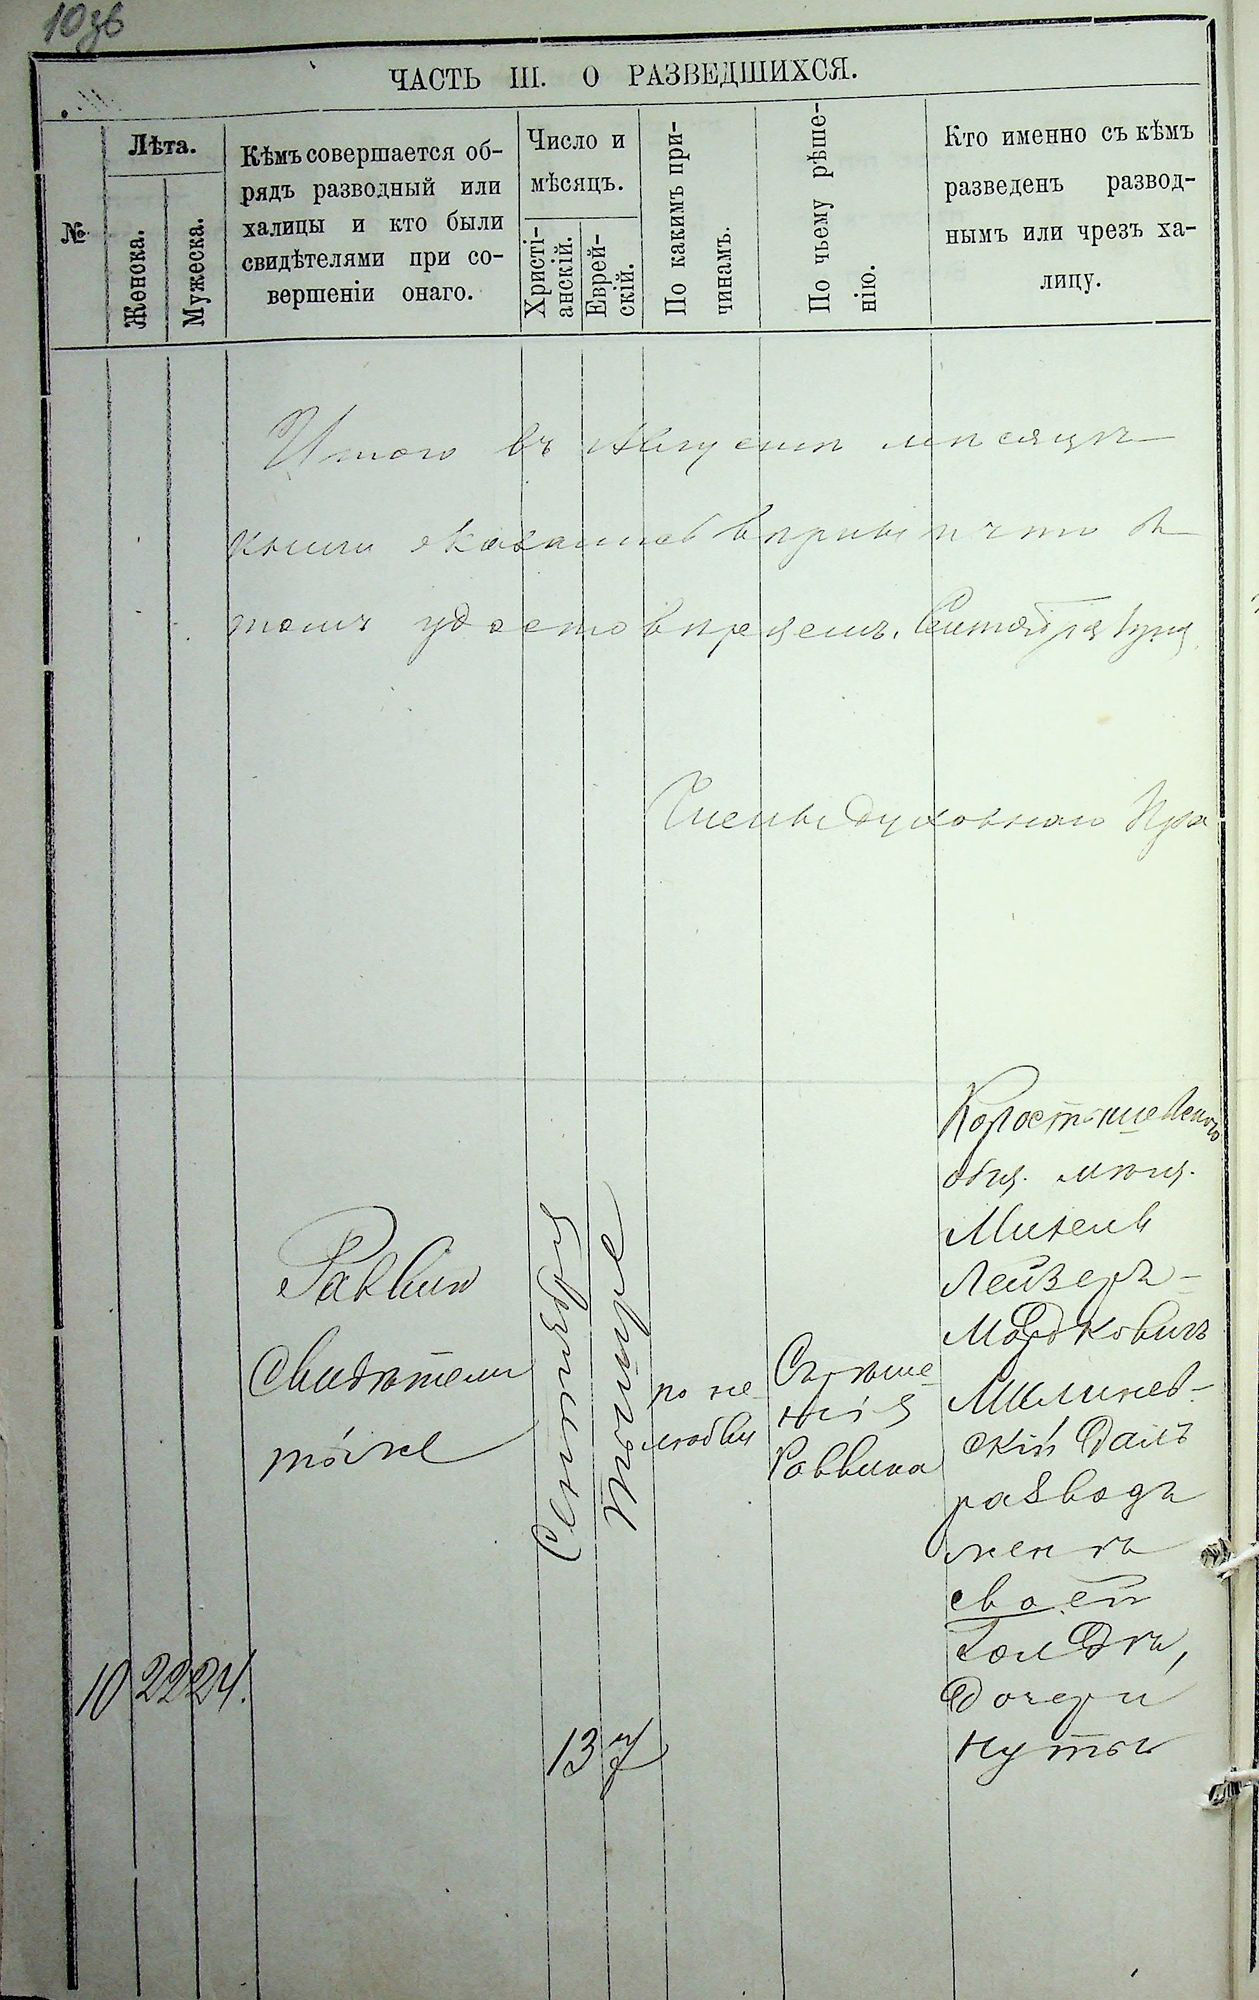 10зв
ЧАСТЬ III. О РАЗВЕДШИХСЯ.
№
Лѣта.
Женска.
Мужеска.
Кѣмъ совершается об-
рядъ разводный или
халицы и кто были
свидѣтелями при со-
вершеніи онаго.
Число и
мѣсяцъ.
Христі-
анскій.
Еврей-
скій.
По какимъ при-
чинамъ.
По чьему рѣше-
нію.
Кто именно съ кѣмъ
разведенъ развод-
нымъ или чрезъ ха-
лицу.
Итого въ Августѣ мѣсяцѣ
томъ удостовѣряемъ. Сентября
Члены Духовнаго Пра
10
22
24.
Раввин
свидѣтели
тѣже
Сентября
13
Тышре
7
по не-
любви
Съ рѣше-
нія
Раввина
Коростышевскаго
общ. мѣщ.
Михель
Лейзеръ-
Мордковичъ
скій далъ
разводъ
женѣ
своей
Голдѣ,
дочери